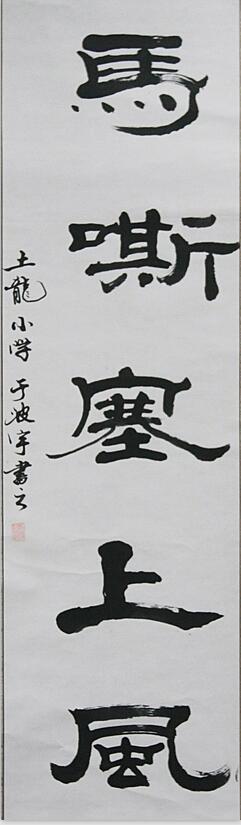 馬嘶塞上風
土龍小学于波宇書之